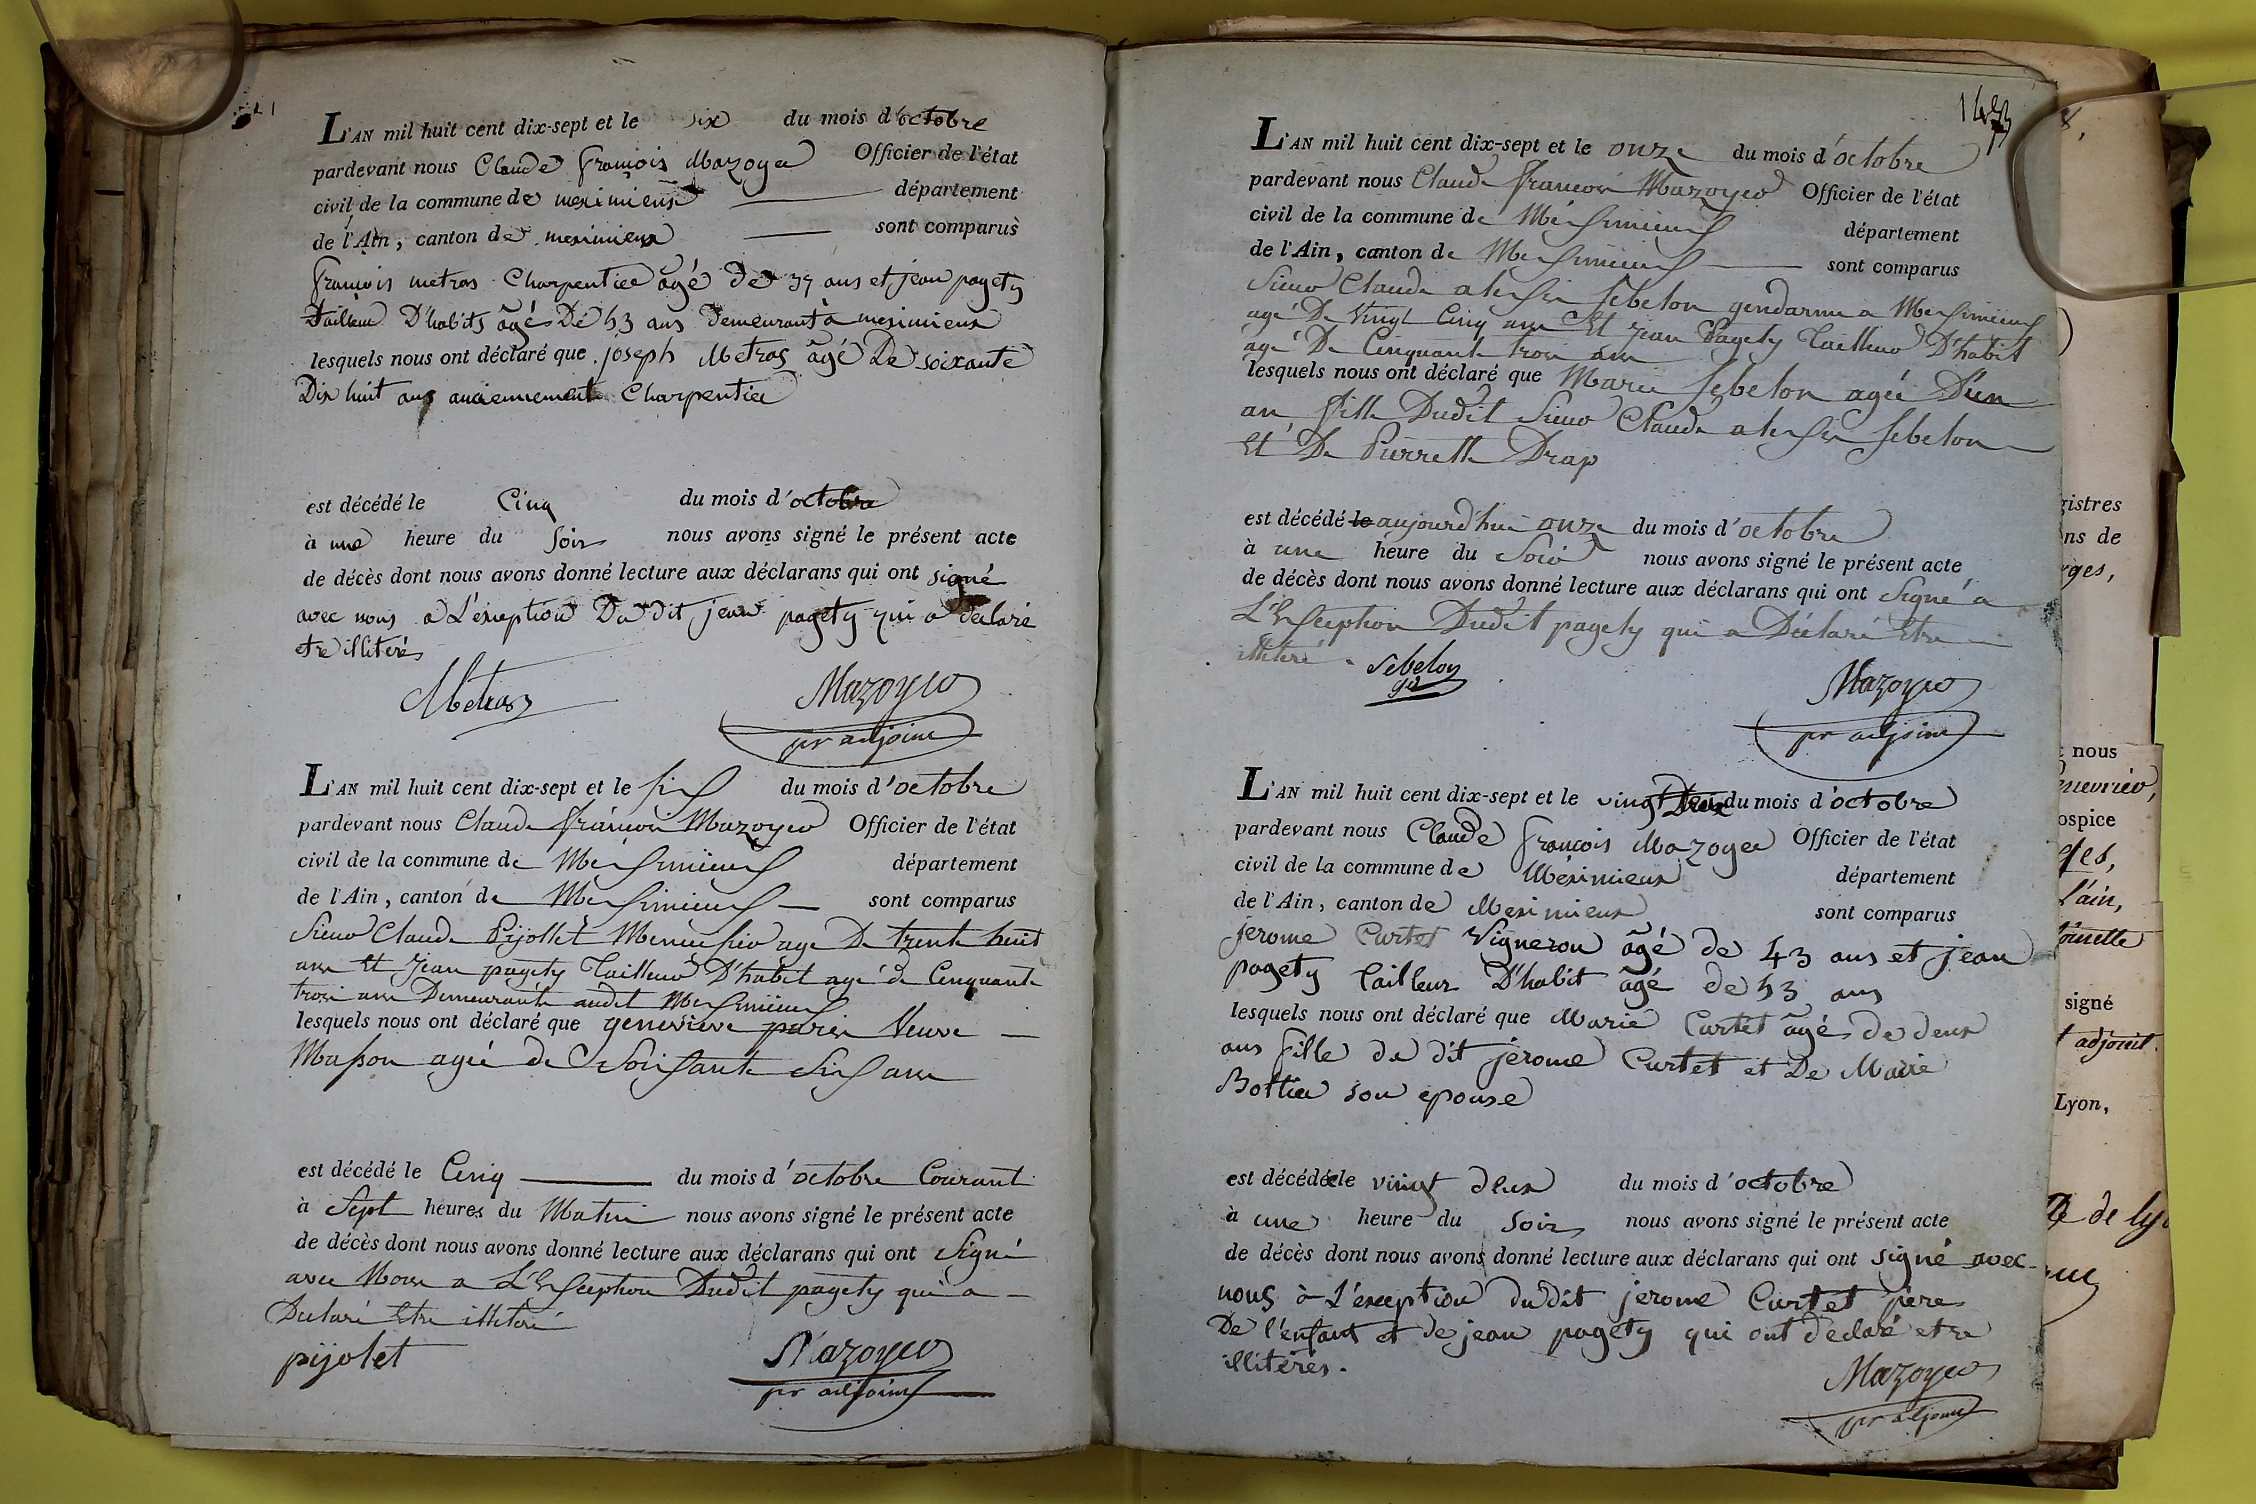 L'AN mil huit cent dix-sept et le six du mois d'octobre
pardevant nous Claude françois Mazoyer Officier de l'état
civil de la commune de meximieux département
de l'Ain, canton de meximieux sont comparus
françois metras Charpentier âgé de 37 ans et jean pagety
tailleur D'habits âgé De 53 ans Demeurant à meximieux
lesquels nous ont déclaré que joseph Metras âgé De soixante
Dix huit ans anciennement Charpentier
est décédé le Cinq du mois d'octobre
à une heure du soir nous avons signé le présent acte
de décès dont nous avons donné lecture aux déclarans qui ont signé
avec nous à L'exception Du dit jean pagety qui a declaré
etre illiterés
Metras Mazoyer
pr adjoint
L'AN mil huit cent dix-sept et le six du mois d'octobre
pardevant nous Claude françois Mazoyer Officier de l'état
civil de la commune de Meximieux département
de l'Ain, canton de Meximieux sont comparus
Sieur Claude Pijollet Menuisier age De trente huit
ans Et Jean pagety Tailleur D'habit agé de Cinquante
trois ans Demeurants audit Meximieux
lesquels nous ont déclaré que genevieve Veuve
Masson agée de Soixante Six ans
est décédé le Cinq du mois d'octobre Courant
à Sept heures du Matin nous avons signé le présent acte
de décès dont nous avons donné lecture aux déclarans qui ont Signé
avec Nous a L'Exception Dudit pagety qui a
Declaré Etre illiteré
pijolet Mazoyer
pr adjoint
143
L'AN mil huit cent dix-sept et le onze du mois d'octobre
pardevant nous Claude françois Mazoyer Officier de l'état
civil de la commune de Meximieux département
de l'Ain, canton de Meximieux sont comparus
Sieur Claude alexis Sebelon gendarme a Meximieux
agé De Vingt Cinq ans Et Jean Pagety Tailleur D'habit
agé De Cinquante trois ans
lesquels nous ont déclaré que Marie Sebelon agée D'un
an fille Dudit Sieur Claude alexis Sebelon
Et De Pierrette Drap
est décédé le aujourd'hui onze du mois d'octobre
à une heure du Soir nous avons signé le présent acte
de décès dont nous avons donné lecture aux déclarans qui ont Signé a
L'Exception Dudit pagety qui a Déclaré Etre
illiteré. Sebelon Mazoyer
pr adjoint
L'AN mil huit cent dix-sept et le vingt Deux du mois d'octobre
pardevant nous Claude françois Mazoyer Officier de l'état
civil de la commune de Meximieux département
de l'Ain, canton de Meximieux sont comparus
jerome Curtet Vigneron âgé de 43 ans et jean
pagety tailleur D'habit âgé de 53 ans
lesquels nous ont déclaré que Marie Curtet âgée de deux
ans fille de dit jerome Curtet et De Marie
Bottier son epouse
est décédée le vingt deux du mois d'octobre
à une heure du soir nous avons signé le présent acte
de décès dont nous avons donné lecture aux déclarans qui ont signé avec
nous à L'exception dudit jerome Curtet père
De l'enfant et de jean pagety qui ont declaré etre
illitérés.
Mazoyer
pr adjoint
gistres
ns de
rges,
nous
ospice
l'ain,
signé
adjoint
Lyon,